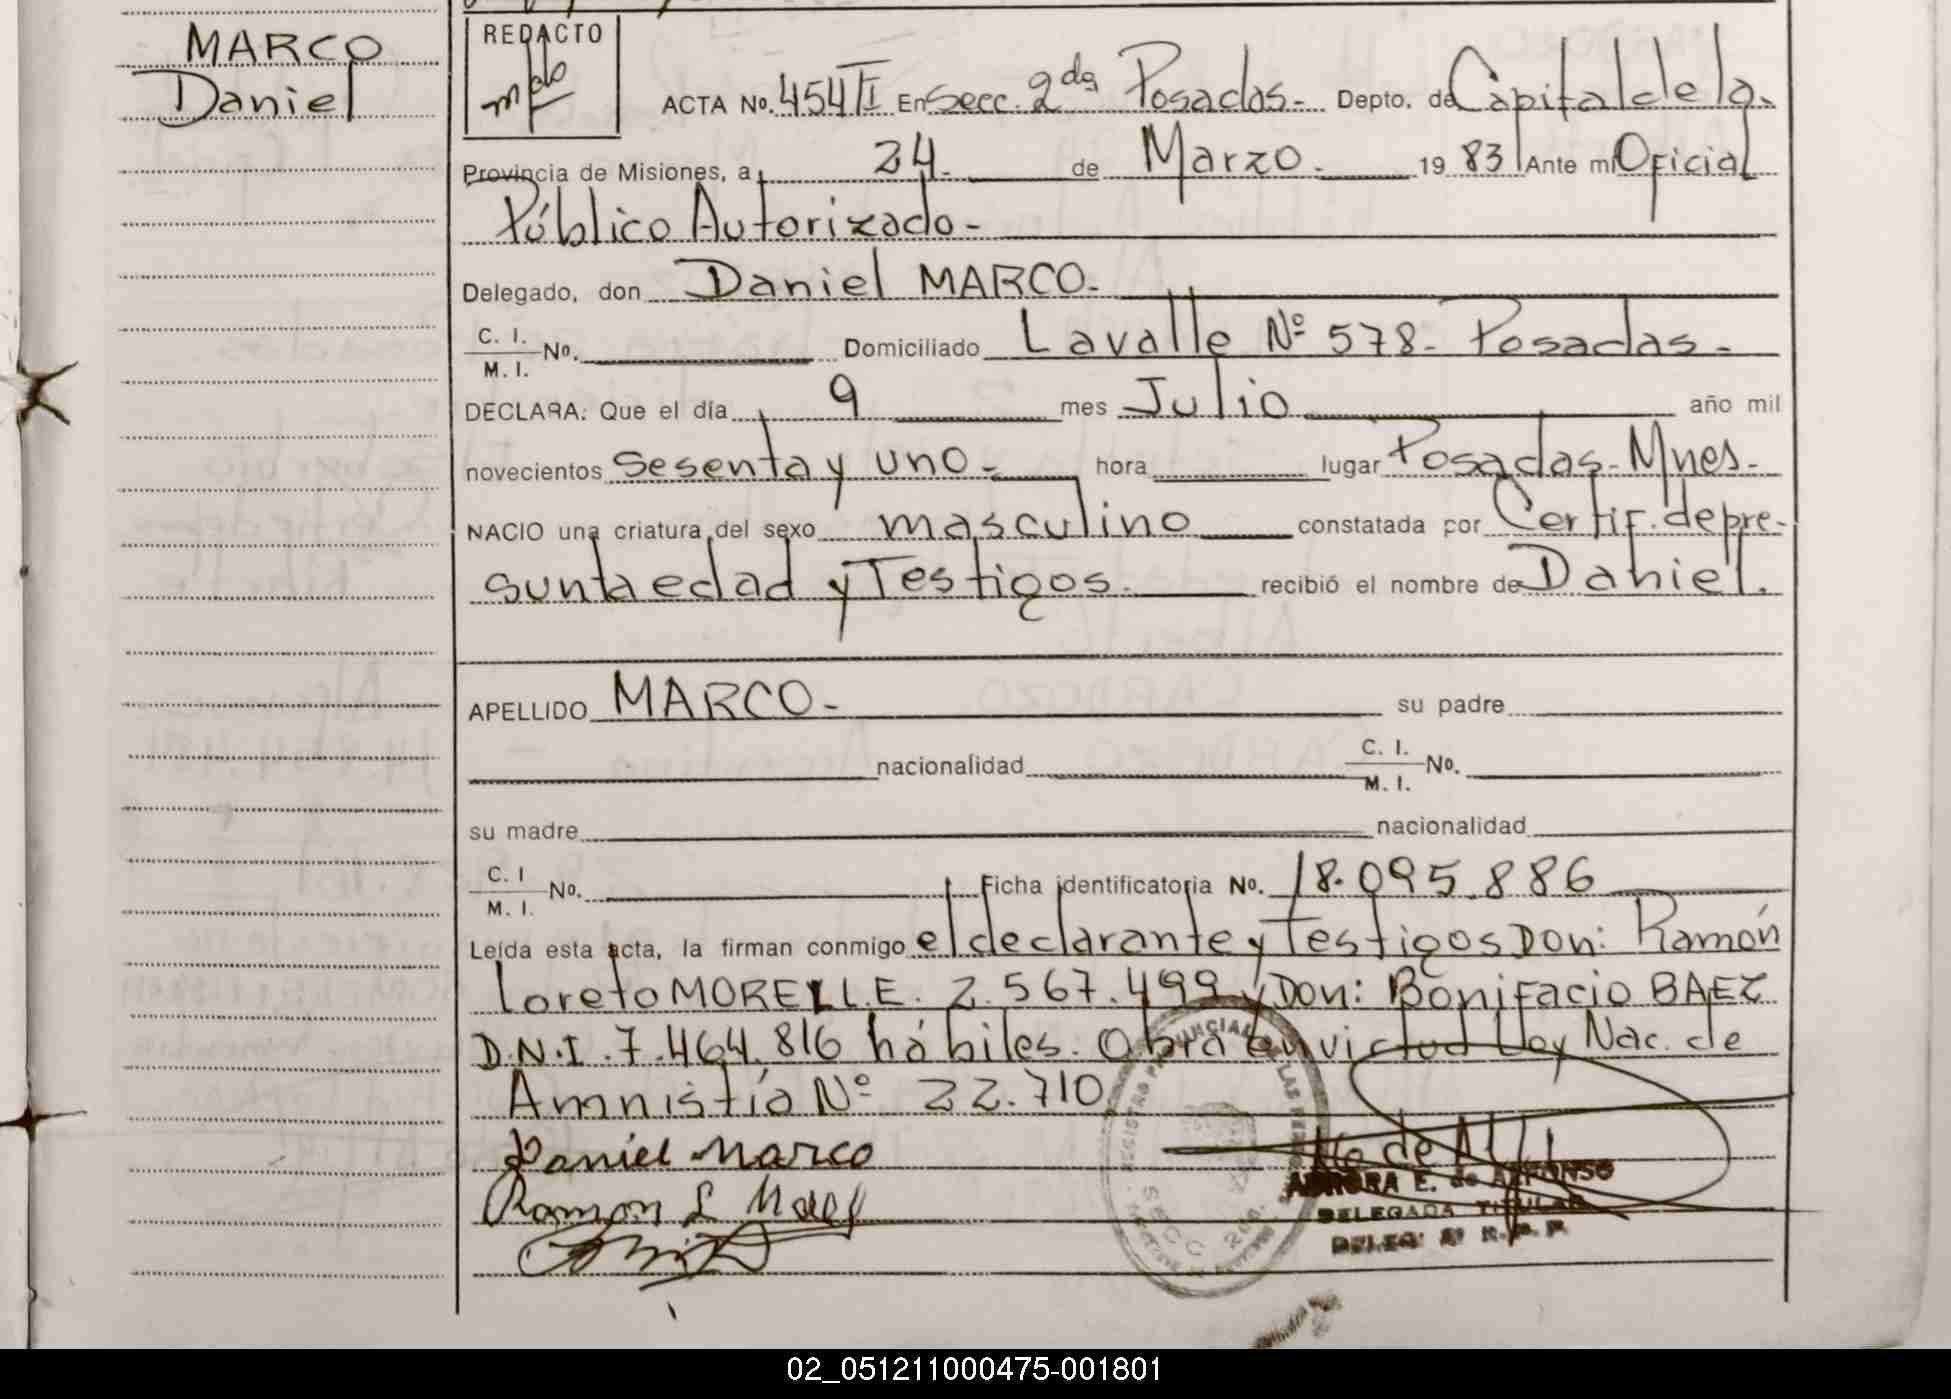 MARCO
Daniel
REDACTO
ACTA No. 454 I En Secc. 2da Posadas- Depto. de Capital de la
Provincia de Misiones, a 24 de Marzo 1983 Ante mi Oficial
Público Autorizado-
Delegado, don Daniel MARCO-
C. I. M. I. No. Domiciliado Lavalle Nº 578- Posadas-
DECLARA: Que el día 9 mes Julio año mil
novecientos Sesenta y uno- hora lugar Posadas- Mnes-
NACIO una criatura del sexo masculino constatada por Certif. de pre-
sunta edad y Testigos. recibió el nombre de Daniel.
APELLIDO MARCO- su padre
nacionalidad C. I. M. I. No.
su madre nacionalidad
C. I M. I. No. Ficha identificatoria No. 18.095.886
Leída esta acta, la firman conmigo el declarante y Testigos Don: Ramón
Loreto MORELLE. 2.567.499 y Don: Bonifacio BAEZ
D.N.I. 7.464.816 hábiles. Obra en virtud Ley Nac. de
Amnistía Nº 22.710
Daniel Marco
Ramon L
AURORA E. de ALFONSO
DELEGADA TITULAR
02_051211000475-001801